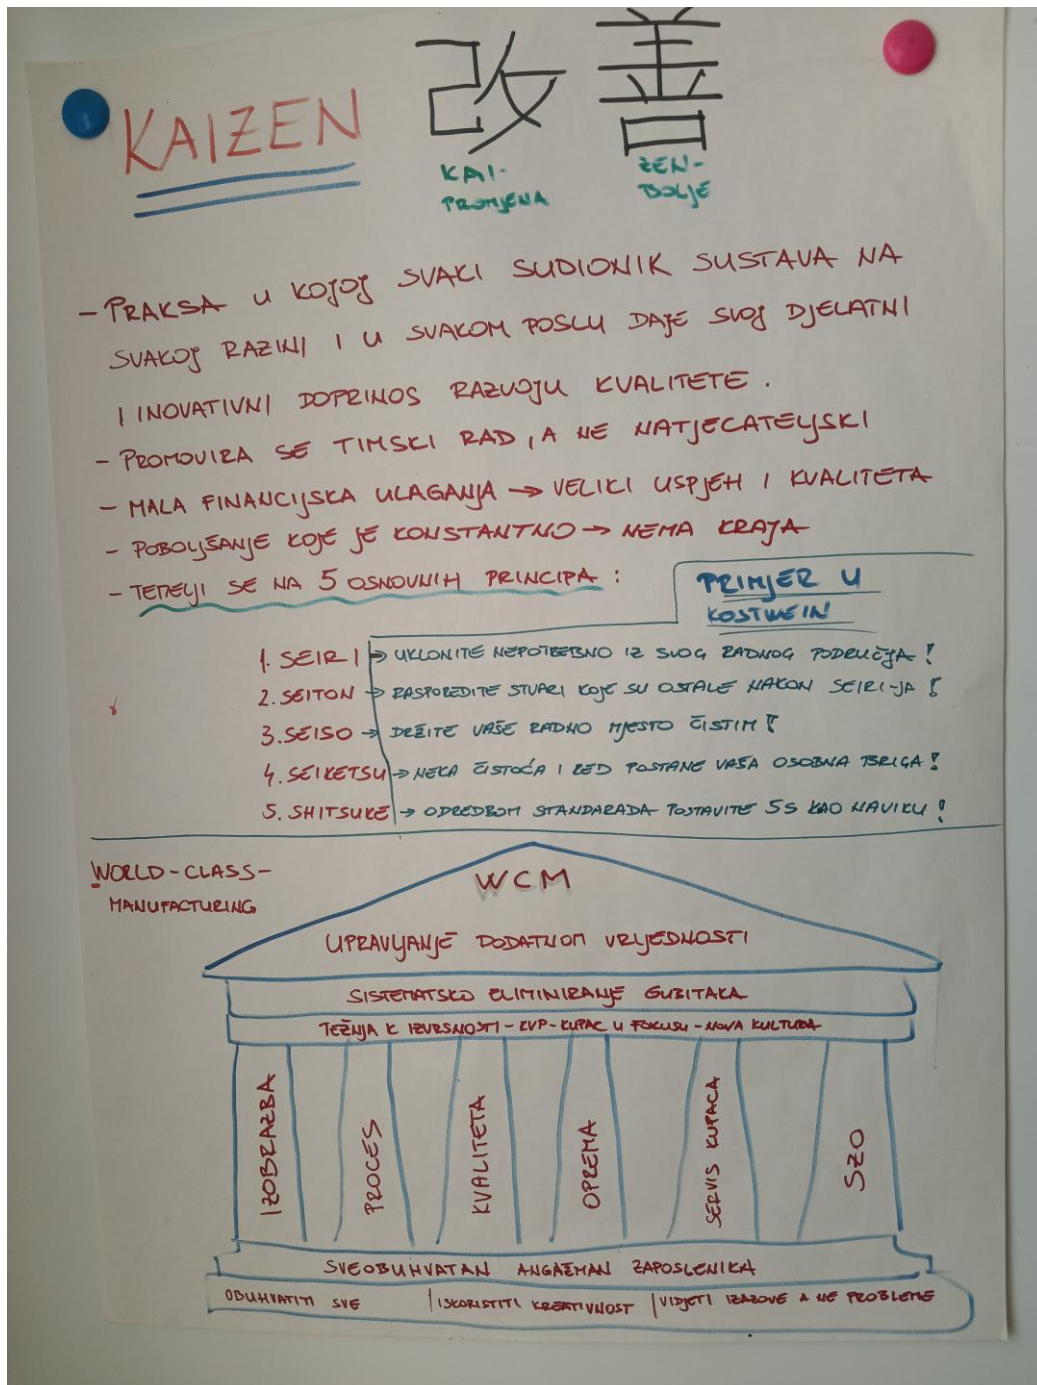 KAIZEN 改善
KAI- ZEN-
PROMJENA BOLJE
- PRAKSA U KOJOJ SVAKI SUDIONIK SUSTAVA NA
SVAKOJ RAZINI I U SVAKOM POSLU DAJE SVOJ DJELATNI
I INOVATIVNI DOPRINOS RAZVOJU KVALITETE.
- PROMOVIRA SE TIMSKI RAD, A NE NATJECATELJSKI
- MALA FINANCIJSKA ULAGANJA → VELIKI USPJEH I KVALITETA
- POBOLJŠANJE KOJE JE KONSTANTNO → NEMA KRAJA
- TEMELJI SE NA 5 OSNOVNIH PRINCIPA:
PRIMJER U
KOSTWEIN
1. SEIRI → UKLONITE NEPOTREBNO IZ SVOG RADNOG PODRUČJA!
2. SEITON → RASPOREDITE STVARI KOJE SU OSTALE NAKON SEIRI-JA!
3. SEISO → DRŽITE VAŠE RADNO MJESTO ČISTIM!
4. SEIKETSU → NEKA ČISTOĆA I RED POSTANE VAŠA OSOBNA BRIGA!
5. SHITSUKE → ODREDBOM STANDARADA POSTAVITE 5S KAO NAVIKU!
WORLD-CLASS-
MANUFACTURING
WCM
UPRAVLJANJE DODATNOM VRIJEDNOSTI
SISTEMATSKO ELIMINIRANJE GUBITAKA
TEŽNJA K IZVRSNOSTI - KVP - KUPAC U FOKUSU - NOVA KULTURA
IZOBRAZBA
PROCES
KVALITETA
OPREMA
SERVIS KUPACA
SZO
SVEOBUHVATAN ANGAŽMAN ZAPOSLENIKA
OBUHVATITI SVE | ISKORISTITI KREATIVNOST | VIDJETI IZAZOVE A NE PROBLEME